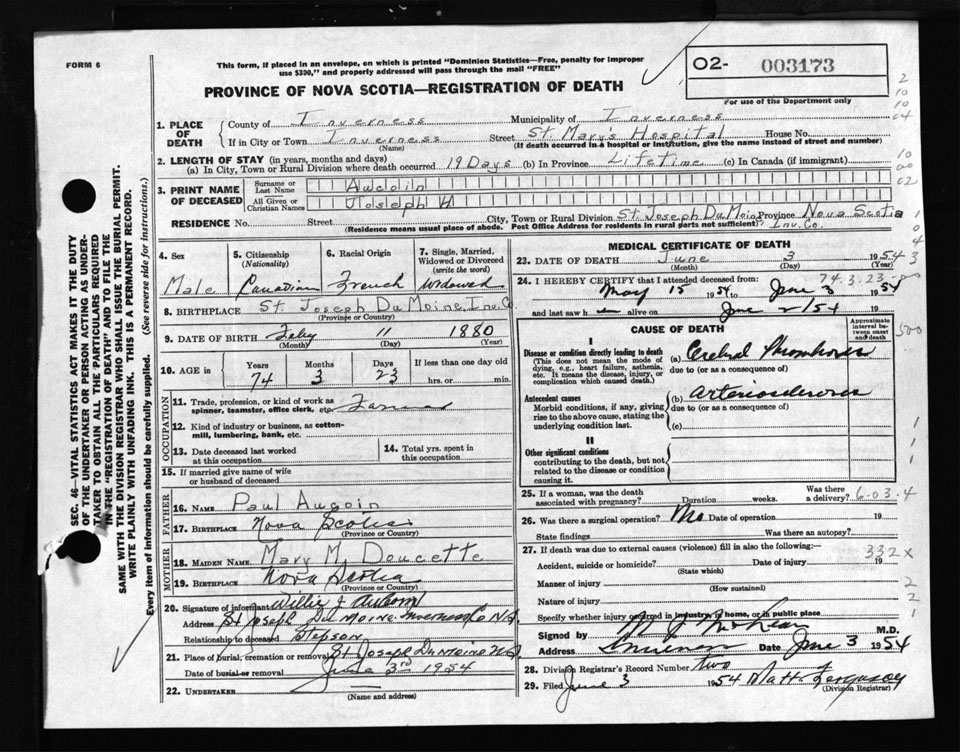 FORM 6
This form, if placed in an envelope, on which is printed "Dominion Statistics—Free, penalty for improper
use $300," and properly addressed will pass through the mail "FREE"
02- 003173
For use of the Department only
PROVINCE OF NOVA SCOTIA—REGISTRATION OF DEATH
1. PLACE OF DEATH
County of Inverness Municipality of Inverness
If in City or Town Inverness Street St. Mary's Hospital House No.
(Name) (If death occurred in a hospital or institution, give the name instead of street and number)
2. LENGTH OF STAY (in years, months and days)
(a) In City, Town or Rural Division where death occurred 19 Days (b) In Province Lifetime (c) In Canada (if immigrant)
3. PRINT NAME OF DECEASED
Surname or Last Name Aucoin
All Given or Christian Names Joseph H
RESIDENCE No. Street City, Town or Rural Division St. Joseph Du Moine Province Nova Scotia
(Residence means usual place of abode. Post Office Address for residents in rural parts not sufficient) Inv. Co.
4. Sex Male
5. Citizenship (Nationality) Canadian
6. Racial Origin French
7. Single, Married, Widowed or Divorced (write the word) Widowed
8. BIRTHPLACE St. Joseph Du Moine, Inv. Co.
(Province or Country)
9. DATE OF BIRTH Feby 11 1880
(Month) (Day) (Year)
10. AGE in Years 74 Months 3 Days 23 If less than one day old hrs. or min.
OCCUPATION
11. Trade, profession, or kind of work as spinner, teamster, office clerk, etc. Farmer
12. Kind of industry or business, as cotten-mill, lumbering, bank, etc.
13. Date deceased last worked at this occupation
14. Total yrs. spent in this occupation
15. If married give name of wife or husband of deceased
FATHER
16. Name Paul Aucoin
17. BIRTHPLACE Nova Scotia
(Province or Country)
MOTHER
18. MAIDEN NAME Mary M Doucette
19. BIRTHPLACE Nova Scotia
(Province or Country)
20. Signature of informant Willie J Aucoin
Address St Joseph Du Moine Inverness Co N.S
Relationship to deceased Stepson
21. Place of burial, cremation or removal St Joseph Du Moine N.S
Date of burial or removal June 3rd 1954
22. UNDERTAKER
(Name and address)
MEDICAL CERTIFICATE OF DEATH
23. DATE OF DEATH June 3 1954
(Month) (Day) (Year)
74.3.23
24. I HEREBY CERTIFY that I attended deceased from:
May 15 1954 to June 3 1954
and last saw h alive on June 2/54
CAUSE OF DEATH
Approximate interval between onset and death
I
Disease or condition directly leading to death
(This does not mean the mode of dying, e.g., heart failure, asthenia, etc. It means the disease, injury, or complication which caused death.)
(a) Cerebral Thrombosis
due to (or as a consequence of)
Antecedent causes
Morbid conditions, if any, giving rise to the above cause, stating the underlying condition last.
(b) Arteriosclerosis
due to (or as a consequence of)
(c)
II
Other significant conditions
contributing to the death, but not related to the disease or condition causing it.
25. If a woman, was the death associated with pregnancy? Duration weeks. Was there a delivery?
6-03-4
26. Was there a surgical operation? No Date of operation 19
State findings Was there an autopsy?
27. If death was due to external causes (violence) fill in also the following:—
332x
Accident, suicide or homicide? Date of injury 19
(State which)
Manner of injury
(How sustained)
Nature of injury
Specify whether injury occurred in industry, in home, or in public place
Signed by M.D.
Address Inverness Date June 3 1954
28. Division Registrar's Record Number two
29. Filed June 3 1954 Matt. Ferguson
(Division Registrar)
SEC. 46—VITAL STATISTICS ACT MAKES IT THE DUTY
OF THE UNDERTAKER OR PERSON ACTING AS UNDER-
TAKER TO OBTAIN ALL THE PARTICULARS REQUIRED
IN THE "REGISTRATION OF DEATH" AND TO FILE THE
SAME WITH THE DIVISION REGISTRAR WHO SHALL ISSUE THE BURIAL PERMIT.
WRITE PLAINLY WITH UNFADING INK. THIS IS A PERMANENT RECORD.
Every item of information should be carefully supplied. (See reverse side for instructions.)